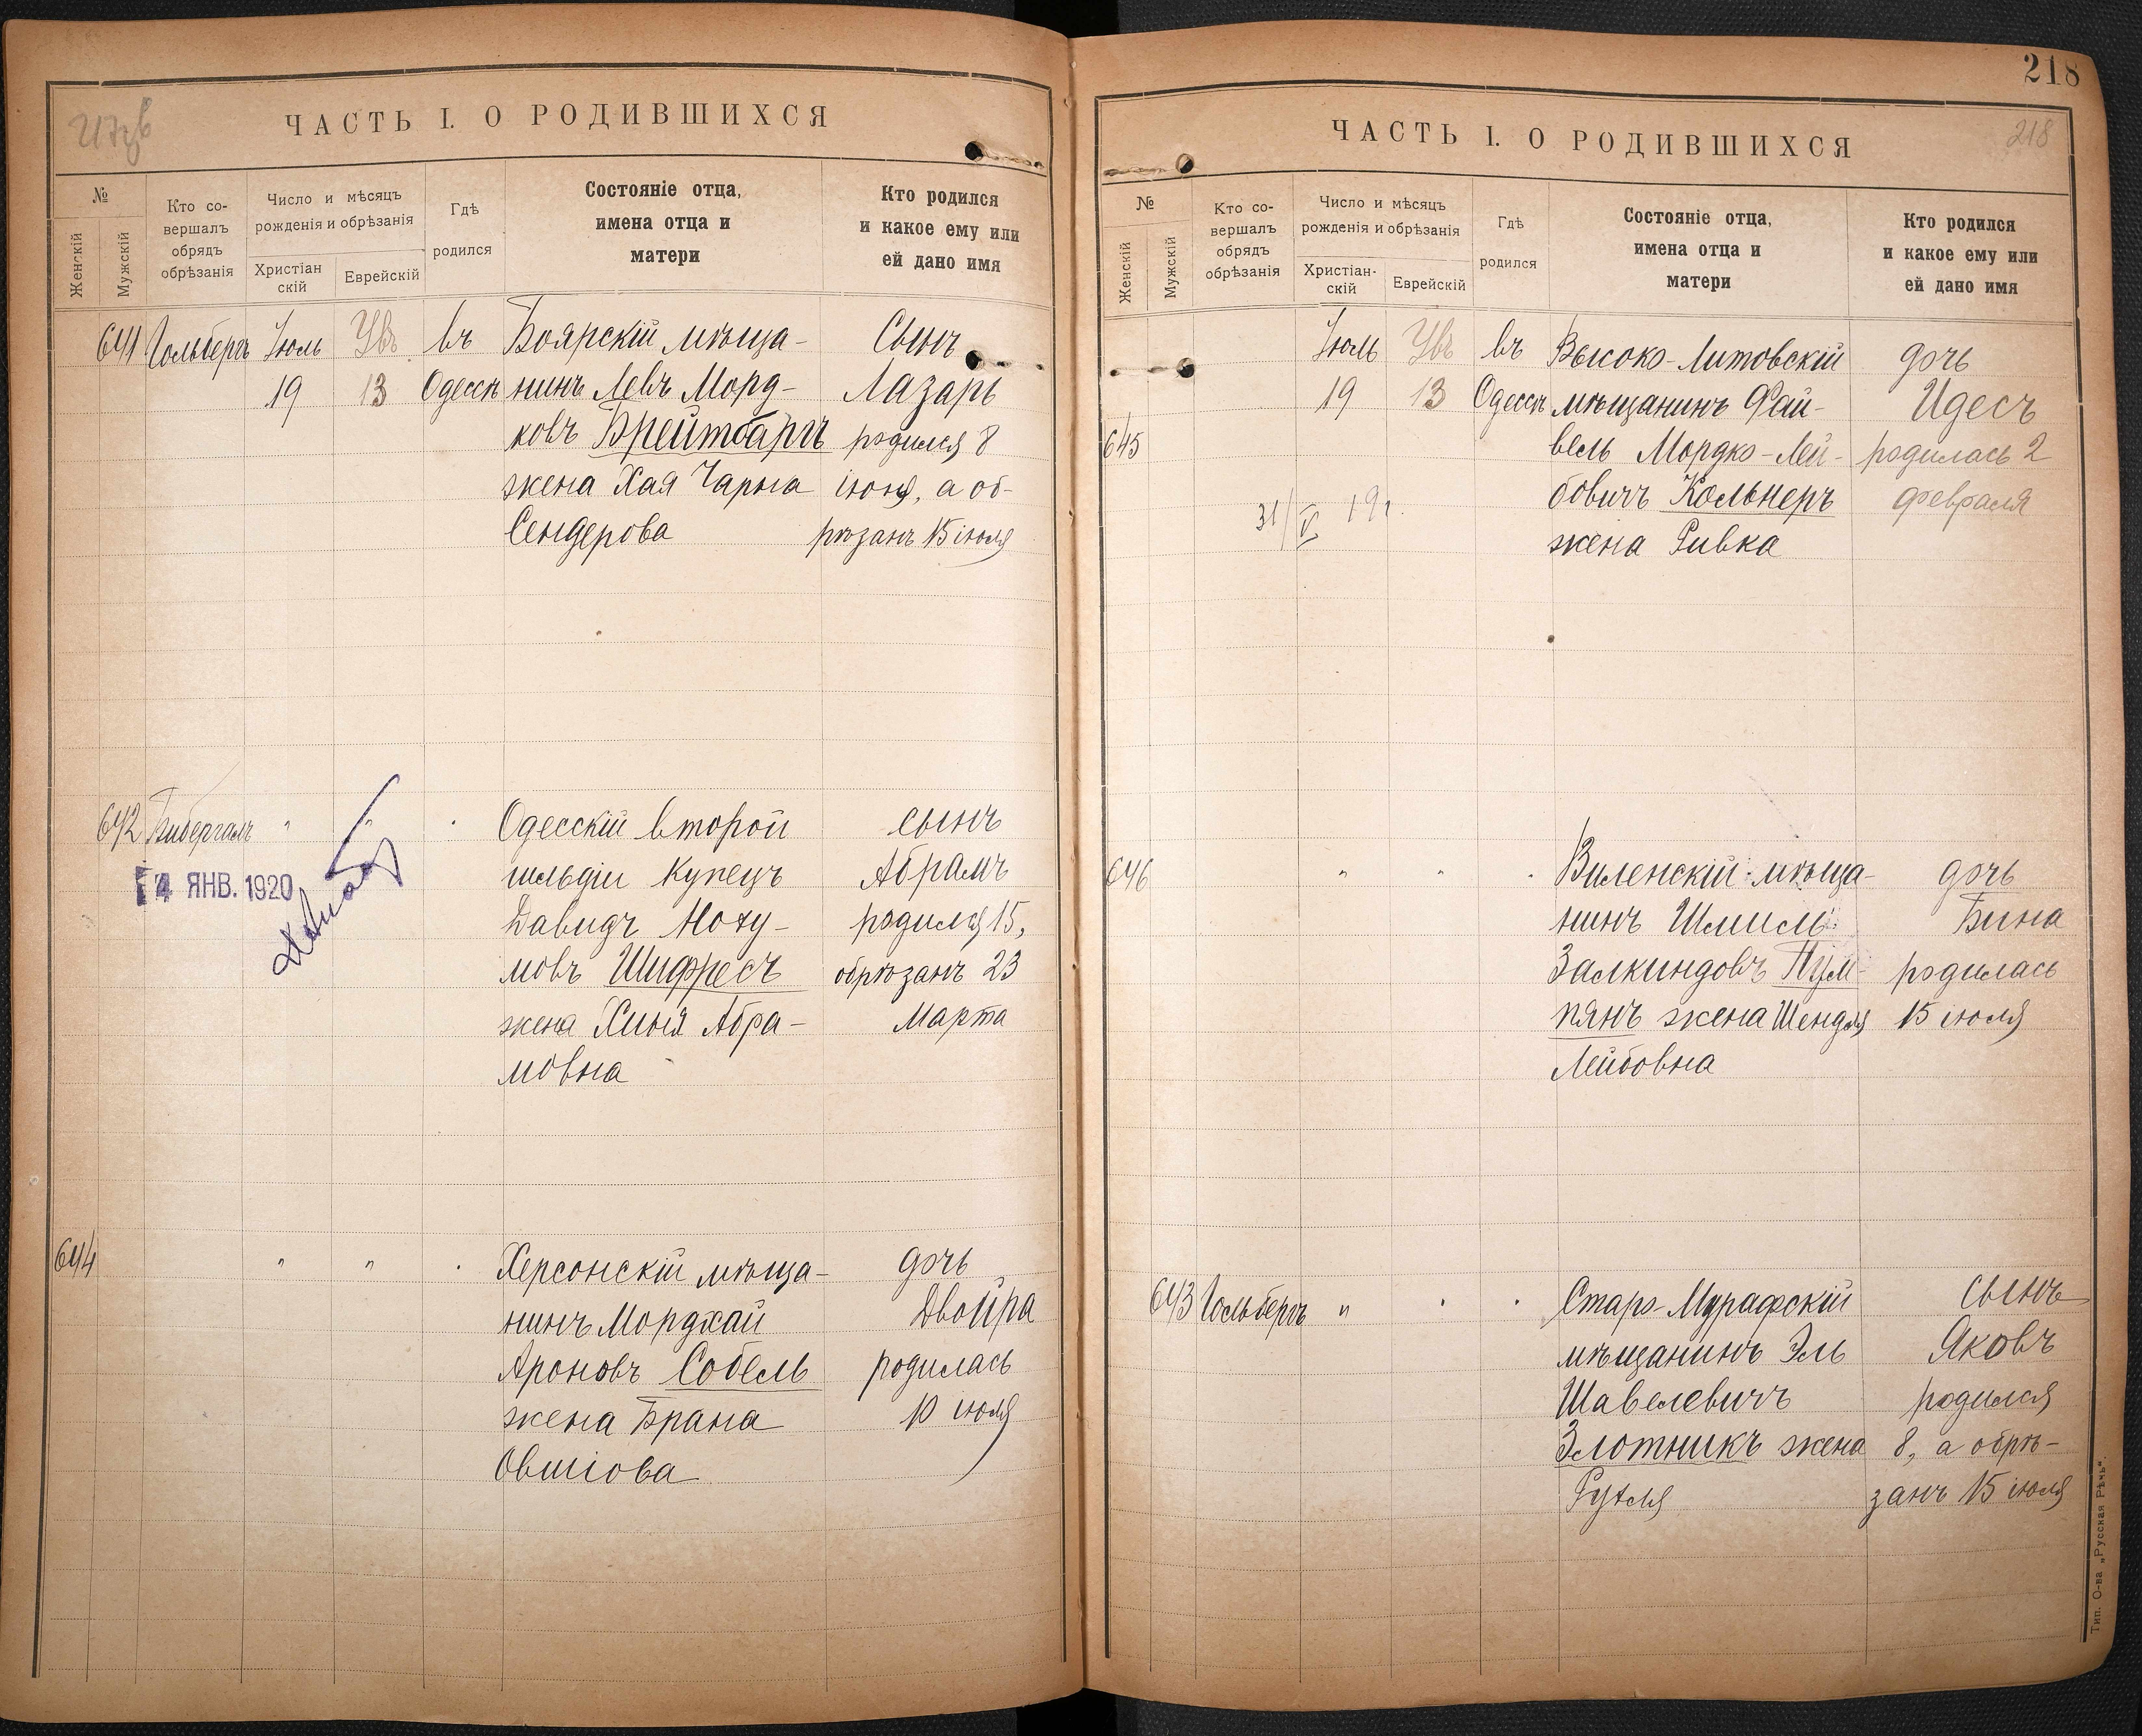 ЧАСТЬ I. О РОДИВШИХСЯ
№
Женскій
Мужскій
Кто со-
вершалъ
обрядъ
обрѣзанія
Число и мѣсяцъ
рожденія и обрѣзанія
Христіан
скій
Еврейскій
Гдѣ
родился
Состояніе отца,
имена отца и
матери
Кто родился
и какое ему или
ей дано имя
641 Гольбергъ Іюль въ Боярскій мѣща- Сынъ
19 13 Одессѣ нинъ Левъ Морд- Лазарь
ковъ Брейтбартъ родился 8
жена Хая Чарна іюля, а об-
Сендерова рѣзанъ 15 іюля
642 Бибергалъ " " Одесскій второй сынъ
гильдіи купецъ Абрамъ
14 ЯНВ. 1920
ДавидъНоху- родился 15,
мовъ Шифресъ обрѣзанъ 23
жена Хиня Абра- Марта
мовна
644 " " Херсонскій мѣща- дочь
нинъ Мордхай Двойра
Ароновъ Собель родилась
жена Брана 10 іюля
Овшіова
218
ЧАСТЬ I. О РОДИВШИХСЯ
218
№
Женскій
Мужскій
Кто со-
вершалъ
обрядъ
обрѣзанія
Число и мѣсяцъ
рожденія и обрѣзанія
Христіан-
скій
Еврейскій
Гдѣ
родился
Состояніе отца,
имена отца и
матери
Кто родился
и какое ему или
ей дано имя
Іюль въ Высоко-Литовскій дочь
19 13 Одессѣ мѣщанинъ Фай- Идесъ
645 вель Мордко-Лей- родилась 2
бовичъ Кольнеръ февраля
31/V 19г.
жена Ривка
646 " " Виленскій мѣща- дочь
нинъ Шмиль Бина
Залкиндовъ Пум- родилась
пянъ жена Шендля 15 іюля
Лейбовна
643 Гольбергъ " Старо-Мурафскій сынъ
мѣщанинъ Эль Яковъ
Шавелевичъ родился
Злотникъ жена 8, а обрѣ-
Рухля занъ 15 іюля
Тип. О-ва „Русская Рѣчь".